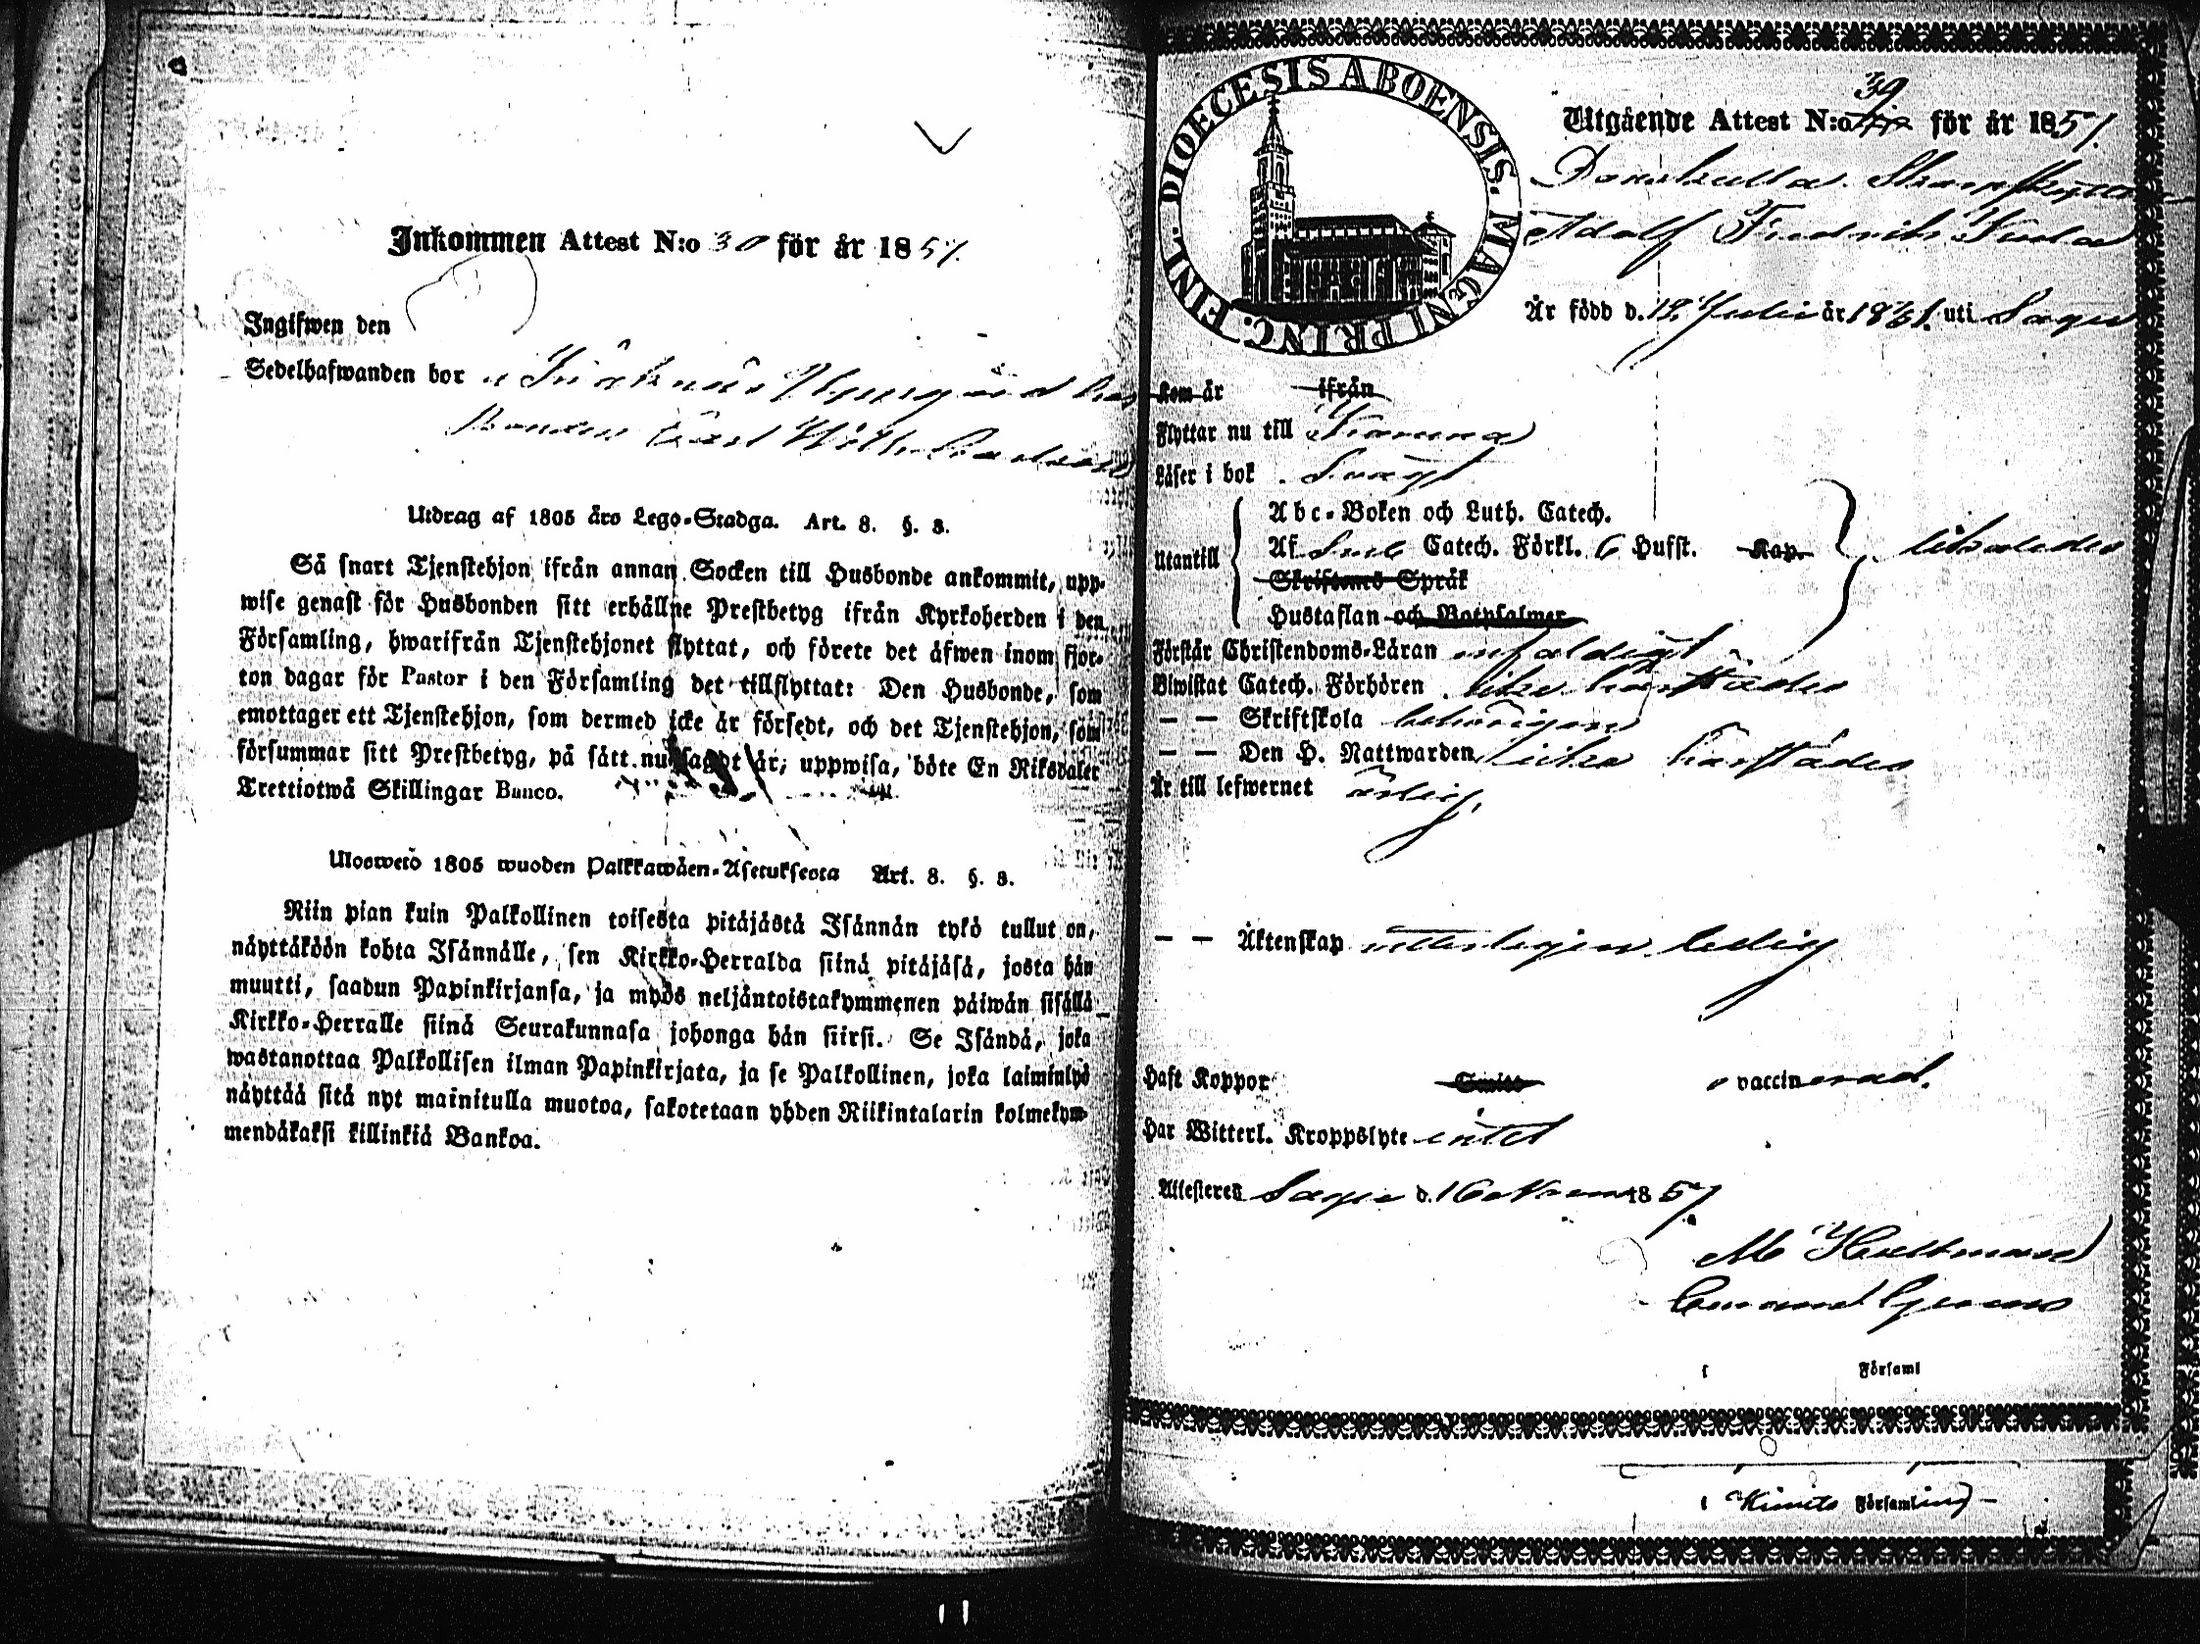 Inkommen Attest N:o 30 för år 1857.
Ingifwen den
Sedelhafwanden bor
Bonden Carl Wilh.
Utdrag af 1805 års Lego-Stadga. Art. 8. §. 3.
Så snart Tjenstehjon ifrån annan Socken till Husbonde ankommit, upp-
wise genast för Husbonden sitt erhållne Prestbetyg ifrån Kyrkoherden i den
Församling, hwarifrån Tjenstehjonet flyttat, och förete det äfwen inom fjor-
ton dagar för Pastor i den Församling det tillflyttat: Den Husbonde, som
emottager ett Tjenstehjon, som dermed icke är försedt, och det Tjenstehjon, som
försummar sitt Prestbetyg, på sätt nu sagdt är, uppwisa, böte En Riksdaler
Trettiotwå Skillingar Banco.
Uloswetö 1805 wuoden Palkkawäen-Asetuksesta Art. 8. §. 3.
Niin pian kuin Palkollinen toisesta pitäjästä Isännän tykö tullut on,
näyttäköön kohta Isännälle, sen Kirkko-Herralda siinä pitäjäsä, josta hän
muutti, saadun Papinkirjansa, ja myös neljäntoistakymmenen päiwän sisällä
Kirkko-Herralle siinä Seurakunnasa johonga hän siirsi. Se Isändä, joka
wastanottaa Palkollisen ilman Papinkirjata, ja se Palkollinen, joka laiminlyö
näyttää sitä nyt mainitulla muotoa, sakotetaan yhden Riikintalarin kolmekym-
mendäkaksi killinkiä Bankoa.
FINL. DIOECESIS ABOENSIS. MAGNI PRINC.
39.
Utgående Attest N:o för år 1857.
Adolf Fredrik
Är född d. 12 Julii år 18 uti Sagu
Kom år ifrån
Flyttar nu till Karuna
Läser i bok Svagt
Utantill
Abc-Boken och Luth. Catech.
Af Sveb Catech. Förkl. 6 Hufst. Kap.
likaledes
Skriftenes Språk
Hustaflan och Botpsalmer
Förstår Christendoms-Läran enfaldigt
Biwistat Catech. Förhören likaså härstädes
— — Skriftskola behörigen
— — Den H. Nattwarden lika härstädes
Är till lefwernet ärlig.
— — Äktenskap ledig
Haft Koppor vaccinerad.
Har Witterl. Kroppslyte intet
Attesteres Sagu d. 16 1857
M Hultman
i Församl
i Kimito Församling